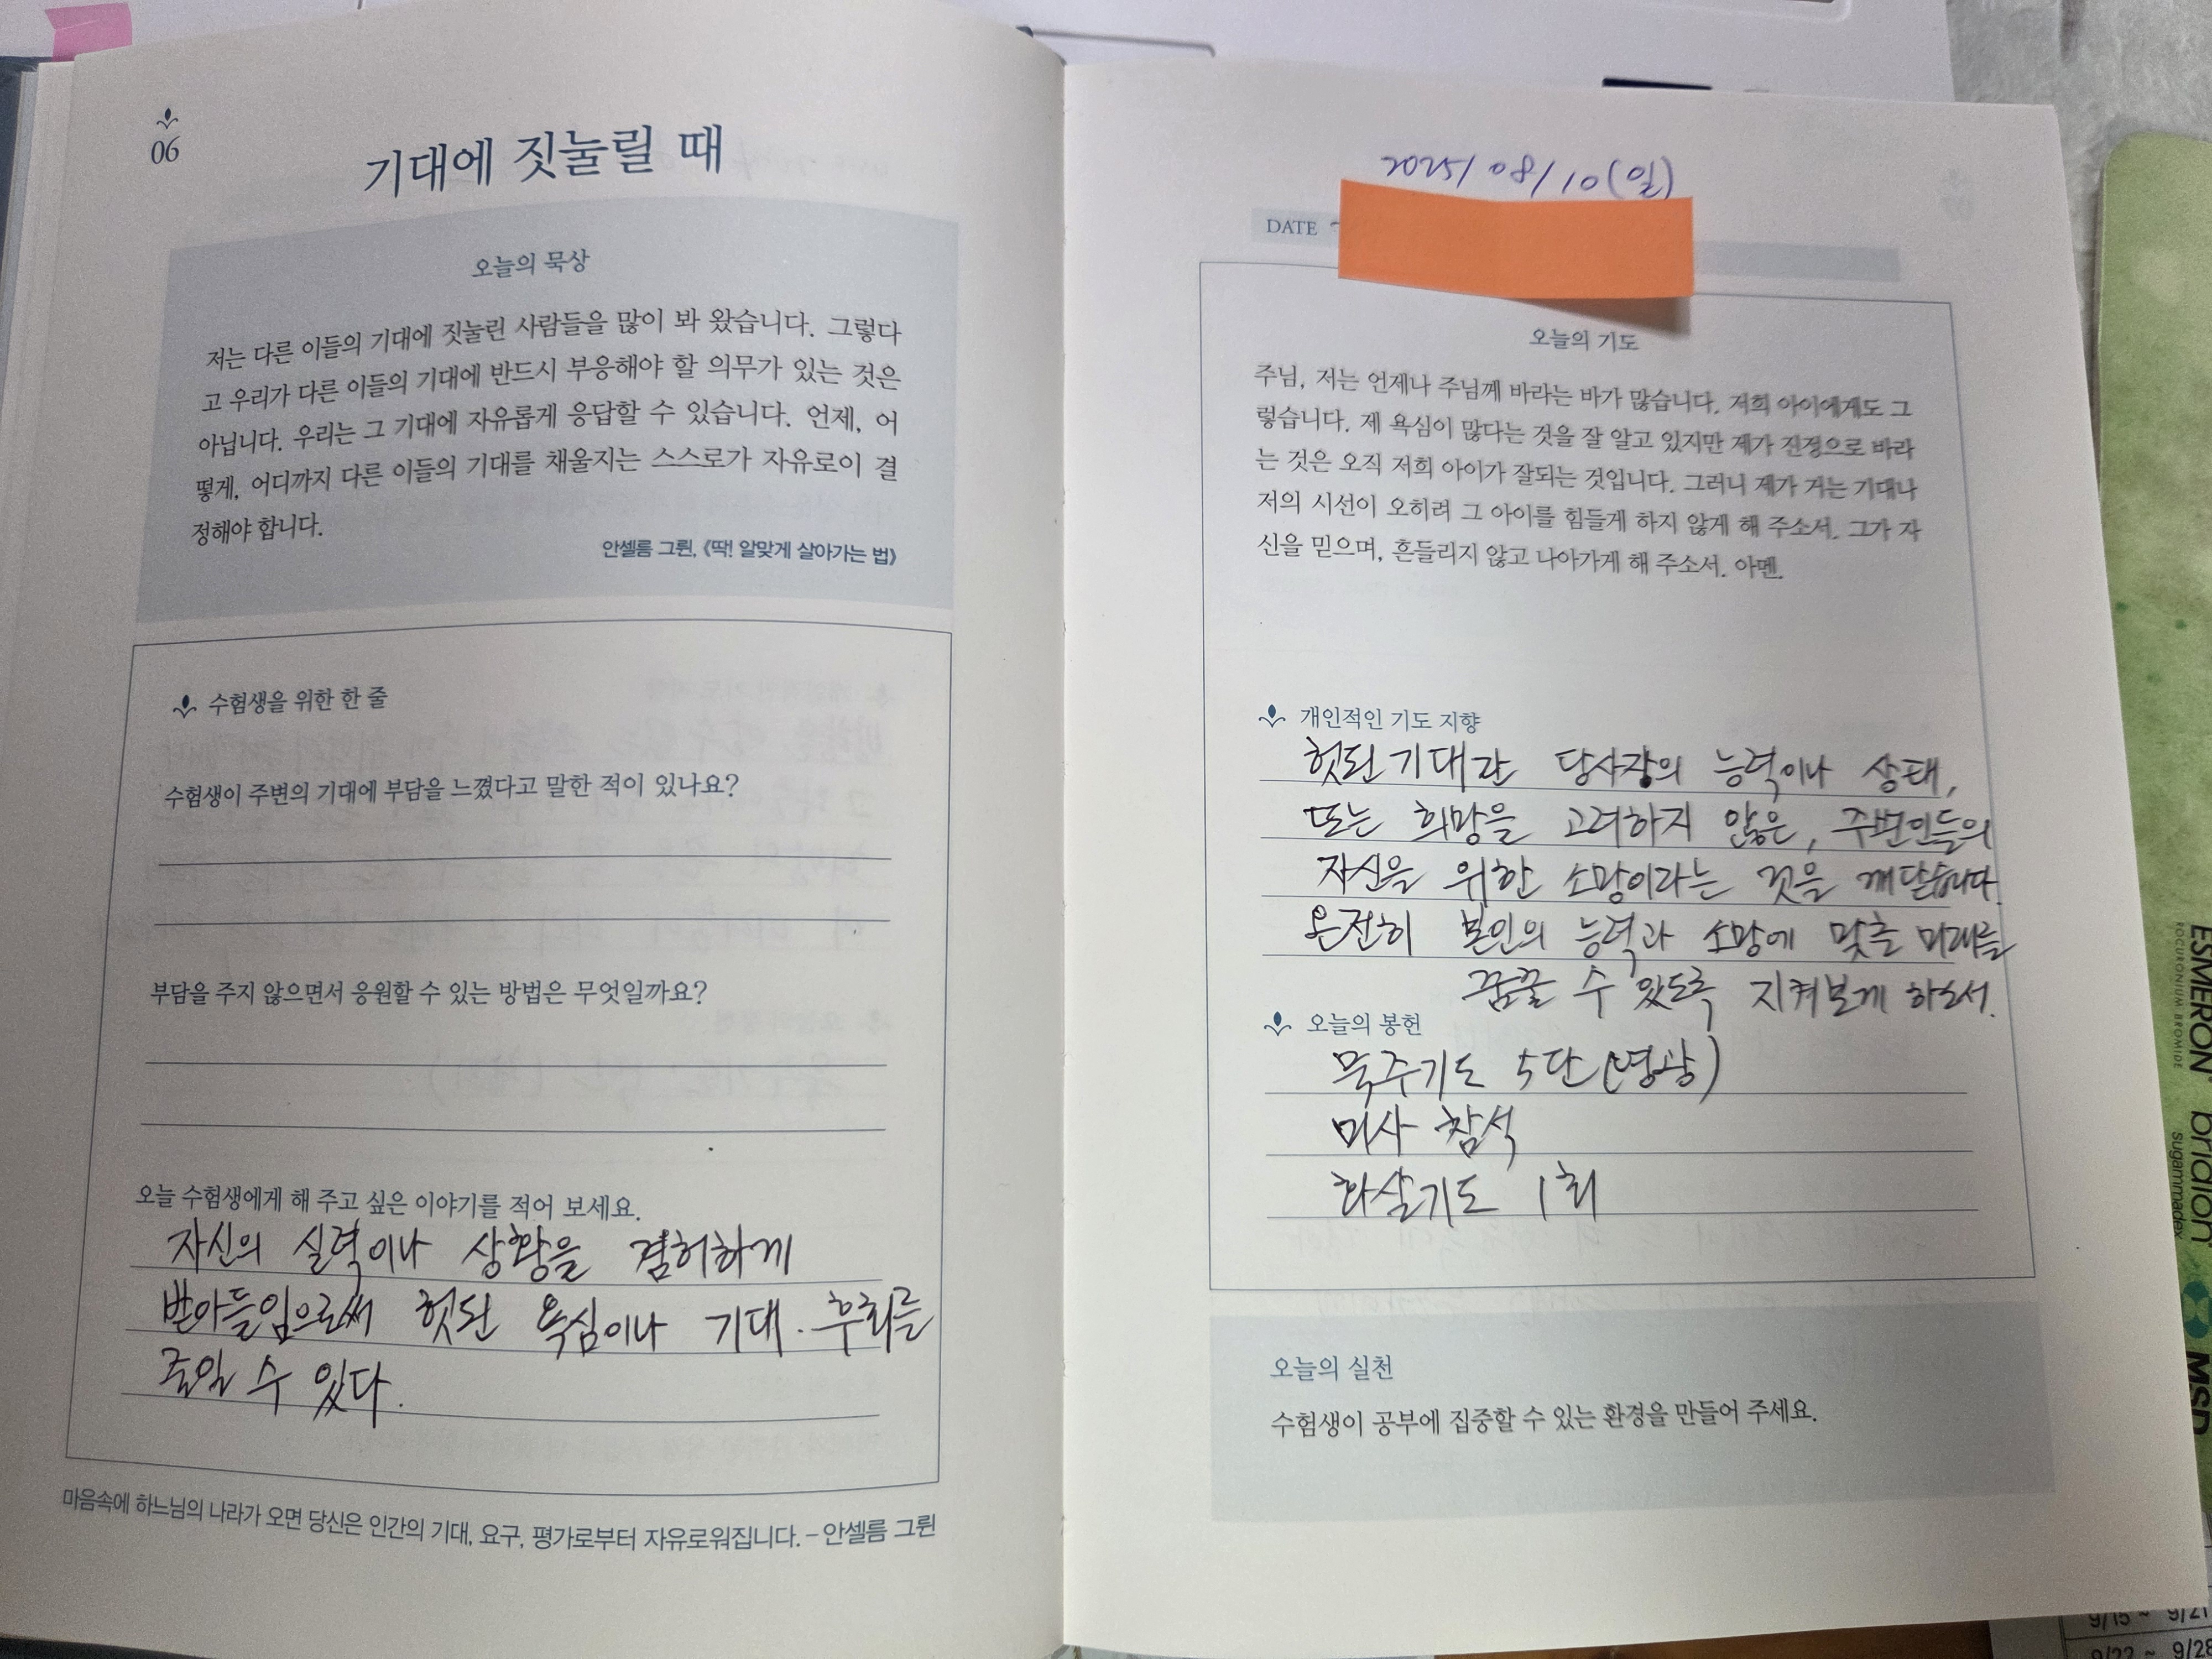 06
기대에 짓눌릴 때
오늘의 묵상
저는 다른 이들의 기대에 짓눌린 사람들을 많이 봐 왔습니다. 그렇다
고 우리가 다른 이들의 기대에 반드시 부응해야 할 의무가 있는 것은
아닙니다. 우리는 그 기대에 자유롭게 응답할 수 있습니다. 언제, 어
떻게, 어디까지 다른 이들의 기대를 채울지는 스스로가 자유로이 결
정해야 합니다.
안셀름 그륀, 《딱! 알맞게 살아가는 법》
수험생을 위한 한 줄
수험생이 주변의 기대에 부담을 느꼈다고 말한 적이 있나요?
부담을 주지 않으면서 응원할 수 있는 방법은 무엇일까요?
오늘 수험생에게 해 주고 싶은 이야기를 적어 보세요.
자신의 실력이나 상황을 겸허하게
받아들임으로써 헛된 욕심이나 기대. 후회를
줄일 수 있다.
마음속에 하느님의 나라가 오면 당신은 인간의 기대, 요구, 평가로부터 자유로워집니다. – 안셀름 그륀
2025/08/10(일)
DATE
오늘의 기도
주님, 저는 언제나 주님께 바라는 바가 많습니다. 저희 아이에게도 그
렇습니다. 제 욕심이 많다는 것을 잘 알고 있지만 제가 진정으로 바라
는 것은 오직 저희 아이가 잘되는 것입니다. 그러니 제가 거는 기대나
저의 시선이 오히려 그 아이를 힘들게 하지 않게 해 주소서. 그가 자
신을 믿으며, 흔들리지 않고 나아가게 해 주소서. 아멘.
개인적인 기도 지향
헛된 기대란 당사장의 능력이나 상태,
또는 희망을 고려하지 않은, 주변인들의
자신을 위한 소망이라는 것을 깨닫습니다.
온전히 본인의 능력과 소망에 맞춘 미래를
꿈꿀 수 있도록 지켜보게 하소서.
오늘의 봉헌
묵주기도 5단(영광)
미사 참석
화살기도 1회
오늘의 실천
수험생이 공부에 집중할 수 있는 환경을 만들어 주세요.
ESMERON
ROCURONIUM BROMIDE
bridion
sugammadex
MSD
9/15 ~ 9/21
9/22 ~ 9/28